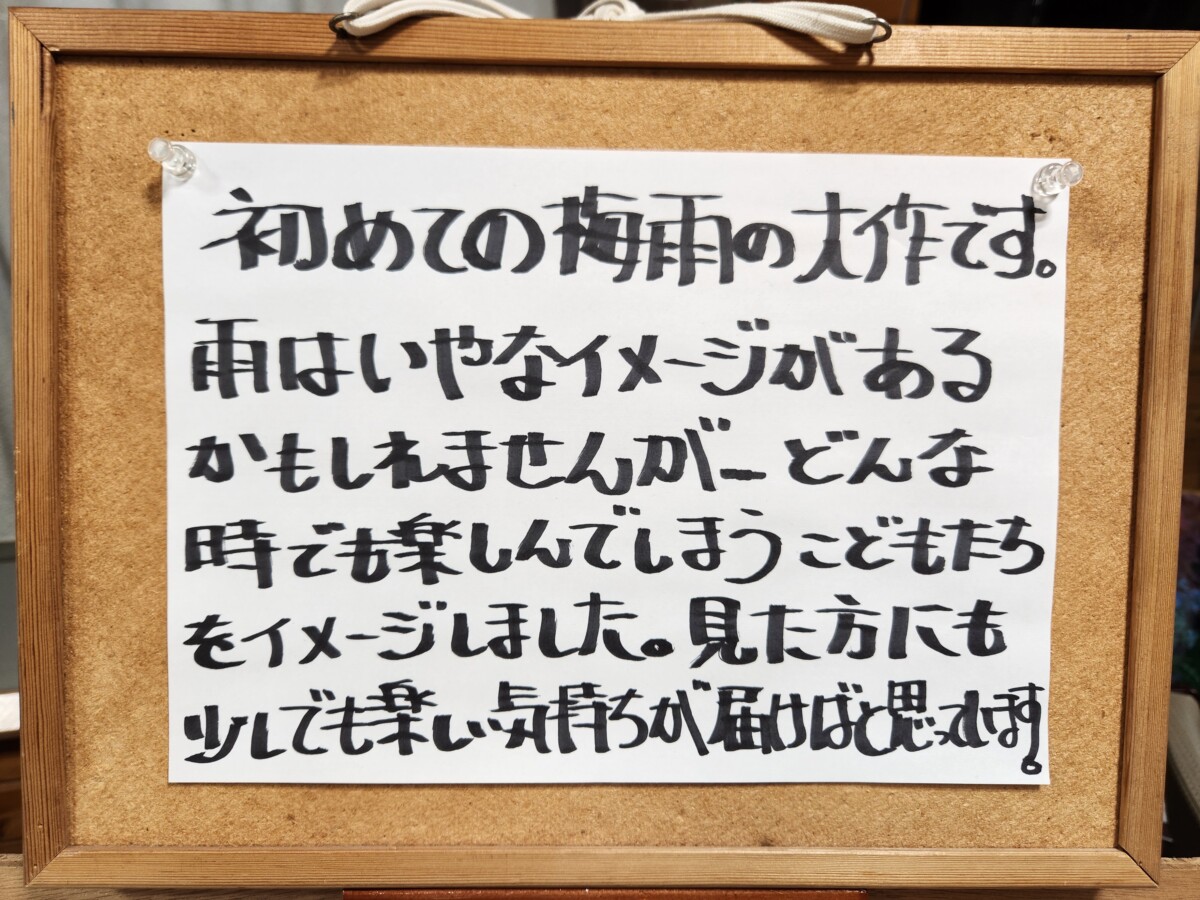 初めての梅雨の大作です。
雨はいやなイメージがある
かもしれませんが、どんな
時でも楽しんでしまうこどもたち
をイメージしました。見た方にも
少しでも楽しい気持ちが届けばと思っています。